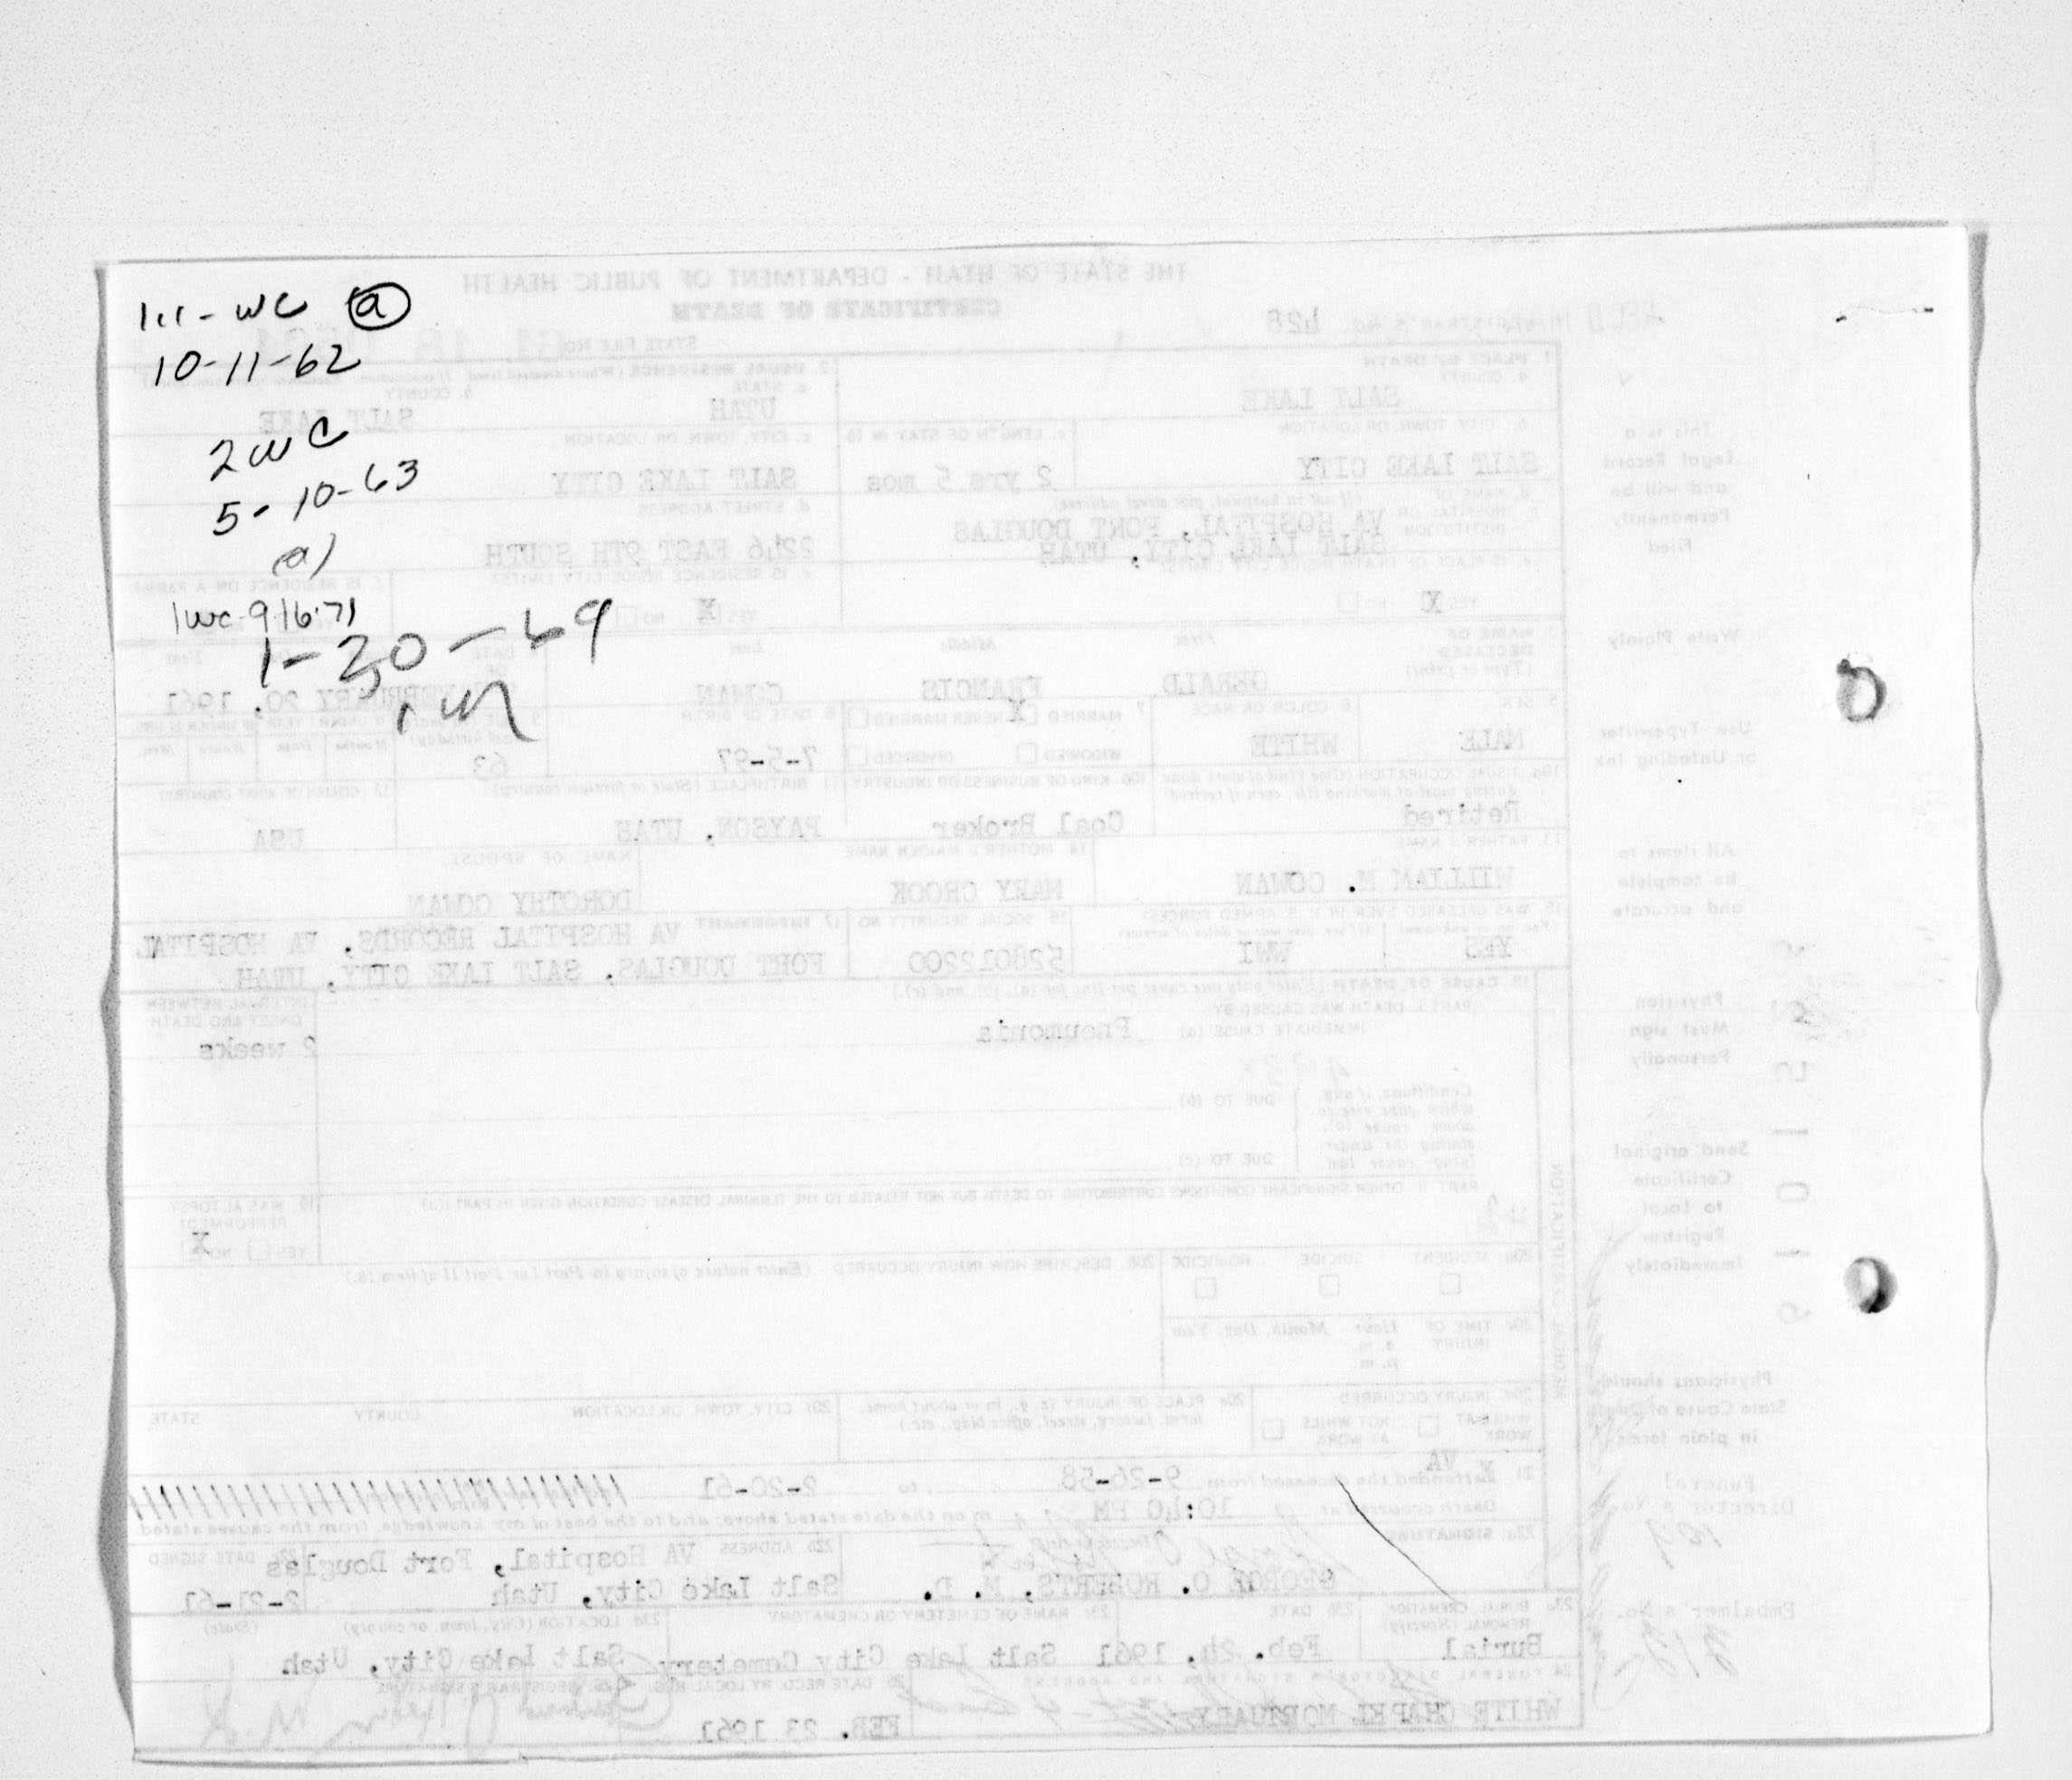 1:1 - WC (a)
10-11-62
2 WC
5-10-63
(a)
1WC-9-16-71
1-30-69
THE STATE OF UTAH - DEPARTMENT OF PUBLIC HEALTH
CERTIFICATE OF DEATH
428
STATE FILE NO. 61 18
1. PLACE OF DEATH
a. COUNTY
SALT LAKE
2. USUAL RESIDENCE
a. STATE
UTAH
b. COUNTY
SALT LAKE
b. CITY, TOWN, OR LOCATION
SALT LAKE CITY
c. LENGTH OF STAY IN 1b
2 yrs 5 mos
c. CITY, TOWN, OR LOCATION
SALT LAKE CITY
d. NAME OF HOSPITAL OR INSTITUTION (If not in hospital, give street address)
VA HOSPITAL, FORT DOUGLAS
SALT LAKE CITY, UTAH
d. STREET ADDRESS
2246 EAST 9TH SOUTH
e. IS PLACE OF DEATH INSIDE CITY LIMITS?
YES X NO
e. IS RESIDENCE INSIDE CITY LIMITS?
YES X NO
f. IS RESIDENCE ON A FARM?
3. NAME OF DECEASED (Type or print)
First Middle Last
GERALD FRANCIS COWAN
4. DATE OF
FEBRUARY 20, 1961
5. SEX
MALE
6. COLOR OR RACE
WHITE
7. MARRIED X NEVER MARRIED
WIDOWED DIVORCED
8. DATE OF BIRTH
7-5-97
9. AGE
63
10a. USUAL OCCUPATION (Give kind of work done during most of working life, even if retired)
Retired
10b. KIND OF BUSINESS OR INDUSTRY
Coal Broker
11. BIRTHPLACE (State or foreign country)
PAYSON, UTAH
12. CITIZEN OF WHAT COUNTRY?
USA
13. FATHER'S NAME
WILLIAM M. COWAN
14. MOTHER'S MAIDEN NAME
MARY CROOK
NAME OF SPOUSE
DOROTHY COWAN
15. WAS DECEASED EVER IN U. S. ARMED FORCES?
YES WWI
16. SOCIAL SECURITY NO.
528012200
17. INFORMANT
VA HOSPITAL RECORDS, VA HOSPITAL
FORT DOUGLAS, SALT LAKE CITY, UTAH
18. CAUSE OF DEATH (Enter only one cause per line for (a), (b), and (c).)
PART I. DEATH WAS CAUSED BY:
IMMEDIATE CAUSE (a) Pneumonia
INTERVAL BETWEEN ONSET AND DEATH
2 weeks
493X
Conditions, if any, which gave rise to above cause (a), stating the underlying cause last.
DUE TO (b)
DUE TO (c)
PART II. OTHER SIGNIFICANT CONDITIONS CONTRIBUTING TO DEATH BUT NOT RELATED TO THE TERMINAL DISEASE CONDITION GIVEN IN PART I (a)
19. WAS AUTOPSY PERFORMED?
YES NO X
20a. ACCIDENT SUICIDE HOMICIDE
20b. DESCRIBE HOW INJURY OCCURRED (Enter nature of injury in Part I or Part II of item 18.)
20c. TIME OF INJURY Hour Month, Day, Year
a. m.
p. m.
20d. INJURY OCCURRED
WHILE AT WORK NOT WHILE AT WORK
20e. PLACE OF INJURY (e. g., in or about home, farm, factory, street, office bldg., etc.)
20f. CITY, TOWN, OR LOCATION COUNTY STATE
21. VA attended the deceased from 9-26-58 to 2-20-61
Death occurred at 10:40 PM m on the date stated above; and to the best of my knowledge, from the causes stated.
22a. SIGNATURE
GEORGE O. ROBERTS, M. D.
22b. ADDRESS
VA Hospital, Fort Douglas
Salt Lake City, Utah
22c. DATE SIGNED
2-21-61
23a. BURIAL, CREMATION, REMOVAL (Specify)
Burial
23b. DATE
Feb. 24, 1961
23c. NAME OF CEMETERY OR CREMATORY
Salt Lake City Cemetery
23d. LOCATION (City, town, or county) (State)
Salt Lake City, Utah
24. FUNERAL DIRECTOR'S SIGNATURE AND ADDRESS
WHITE CHAPEL MORTUARY
25. DATE RECD. BY LOCAL REG.
FEB. 23 1961
REGISTRAR'S SIGNATURE
MEDICAL CERTIFICATION
This is a
Legal Record
and will be
Permanently
Filed
Write Plainly
Use Typewriter
or Unfading Ink
All items to
be complete
and accurate
Physician
Must sign
Personally
Send original
Certificate
to Local
Registrar
Immediately
Physicians should
State Cause of Death
in plain terms
Funeral
Director's No.
109
Embalmer's No.